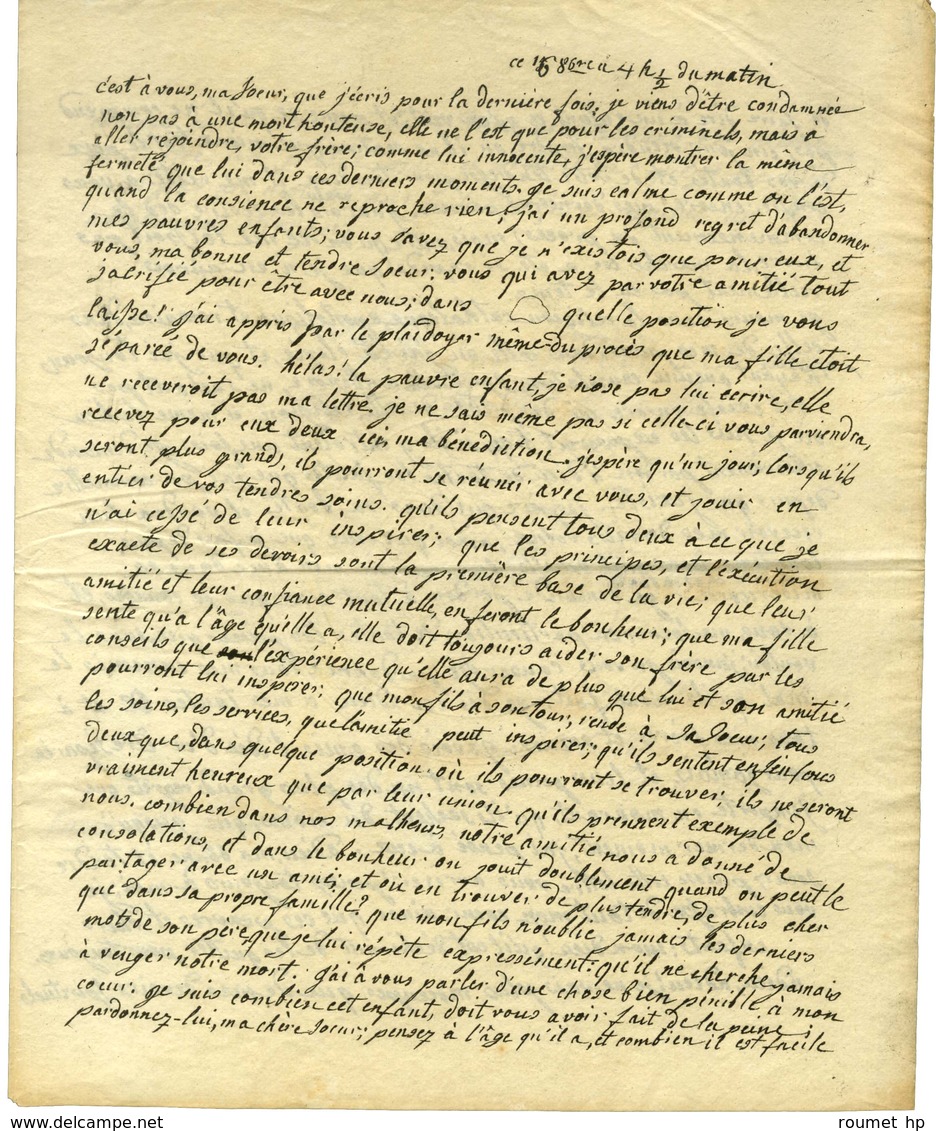 ce 16 8bre à 4 h ½ du matin
c'est à vous, ma Soeur, que j'écris pour la dernière fois; je viens d'être condamnée
non pas à une mort honteuse, elle ne l'est que pour les criminels, mais à
aller rejoindre, votre frère; comme lui innocente, j'espère montrer la même
fermeté que lui dans ces derniers moments. Je suis calme comme on l'est,
quand la consience ne reproche rien; j'ai un profond regret d'abandonner
mes pauvres enfants; vous savez que je n'existois que pour eux, et
vous, ma bonne et tendre Soeur; vous qui avez par votre amitié tout
sacrifié pour être avec nous; dans quelle position je vous
laisse! j'ai appris par le plaidoyer même du procès que ma fille étoit
séparée de vous. hélas! la pauvre enfant, je n'ose pas lui écrire, elle
ne receveroit pas ma lettre. je ne sais même pas si celle-ci vous parviendra,
recevez pour eux deux ici, ma bénédiction. j'espère qu'un jour, lorsqu'ils
seront plus grands, ils pourront se réunir avec vous, et jouir en
entier de vos tendres soins. qu'ils pensent tous deux à ce que je
n'ai cessé de leur inspirer; que les principes, et l'éxécution
exacte de ses devoirs sont la première base de la vie; que leur
amitié et leur confiance mutuelle, en feront le bonheur; que ma fille
sente qu'à l'âge qu'elle a, elle doit toujours aider son frère par les
conseils que l'éxpérience qu'elle aura de plus que lui et son amitié
pourront lui inspirer; que mon fils à son tour, rende à sa Soeur, tous
les soins, les services, que l'amitié peut inspirer; qu'ils sentent enfin tous
deux que, dans quelque position où ils pourront se trouver, ils ne seront
vraiment heureux que par leur union. qu'ils prennent exemple de
nous. combien dans nos malheurs, notre amitié nous a donné de
consolations, et dans le bonheur on jouit doublement quand on peut le
partager avec un ami; et où en trouver de plus tendre, de plus cher
que dans sa propre famille? que mon fils n'oublie jamais les derniers
mots de son père, que je lui répète expressément: qu'il ne cherche jamais
à venger notre mort. j'ai à vous parler d'une chose bien pénible à mon
coeur. Je sais combien cet enfant, doit vous avoir fait de la peine;
pardonnez-lui, ma chère Soeur; pensez à l'âge qu'il a, et combien il est facile
roumet hp
www.delcampe.net